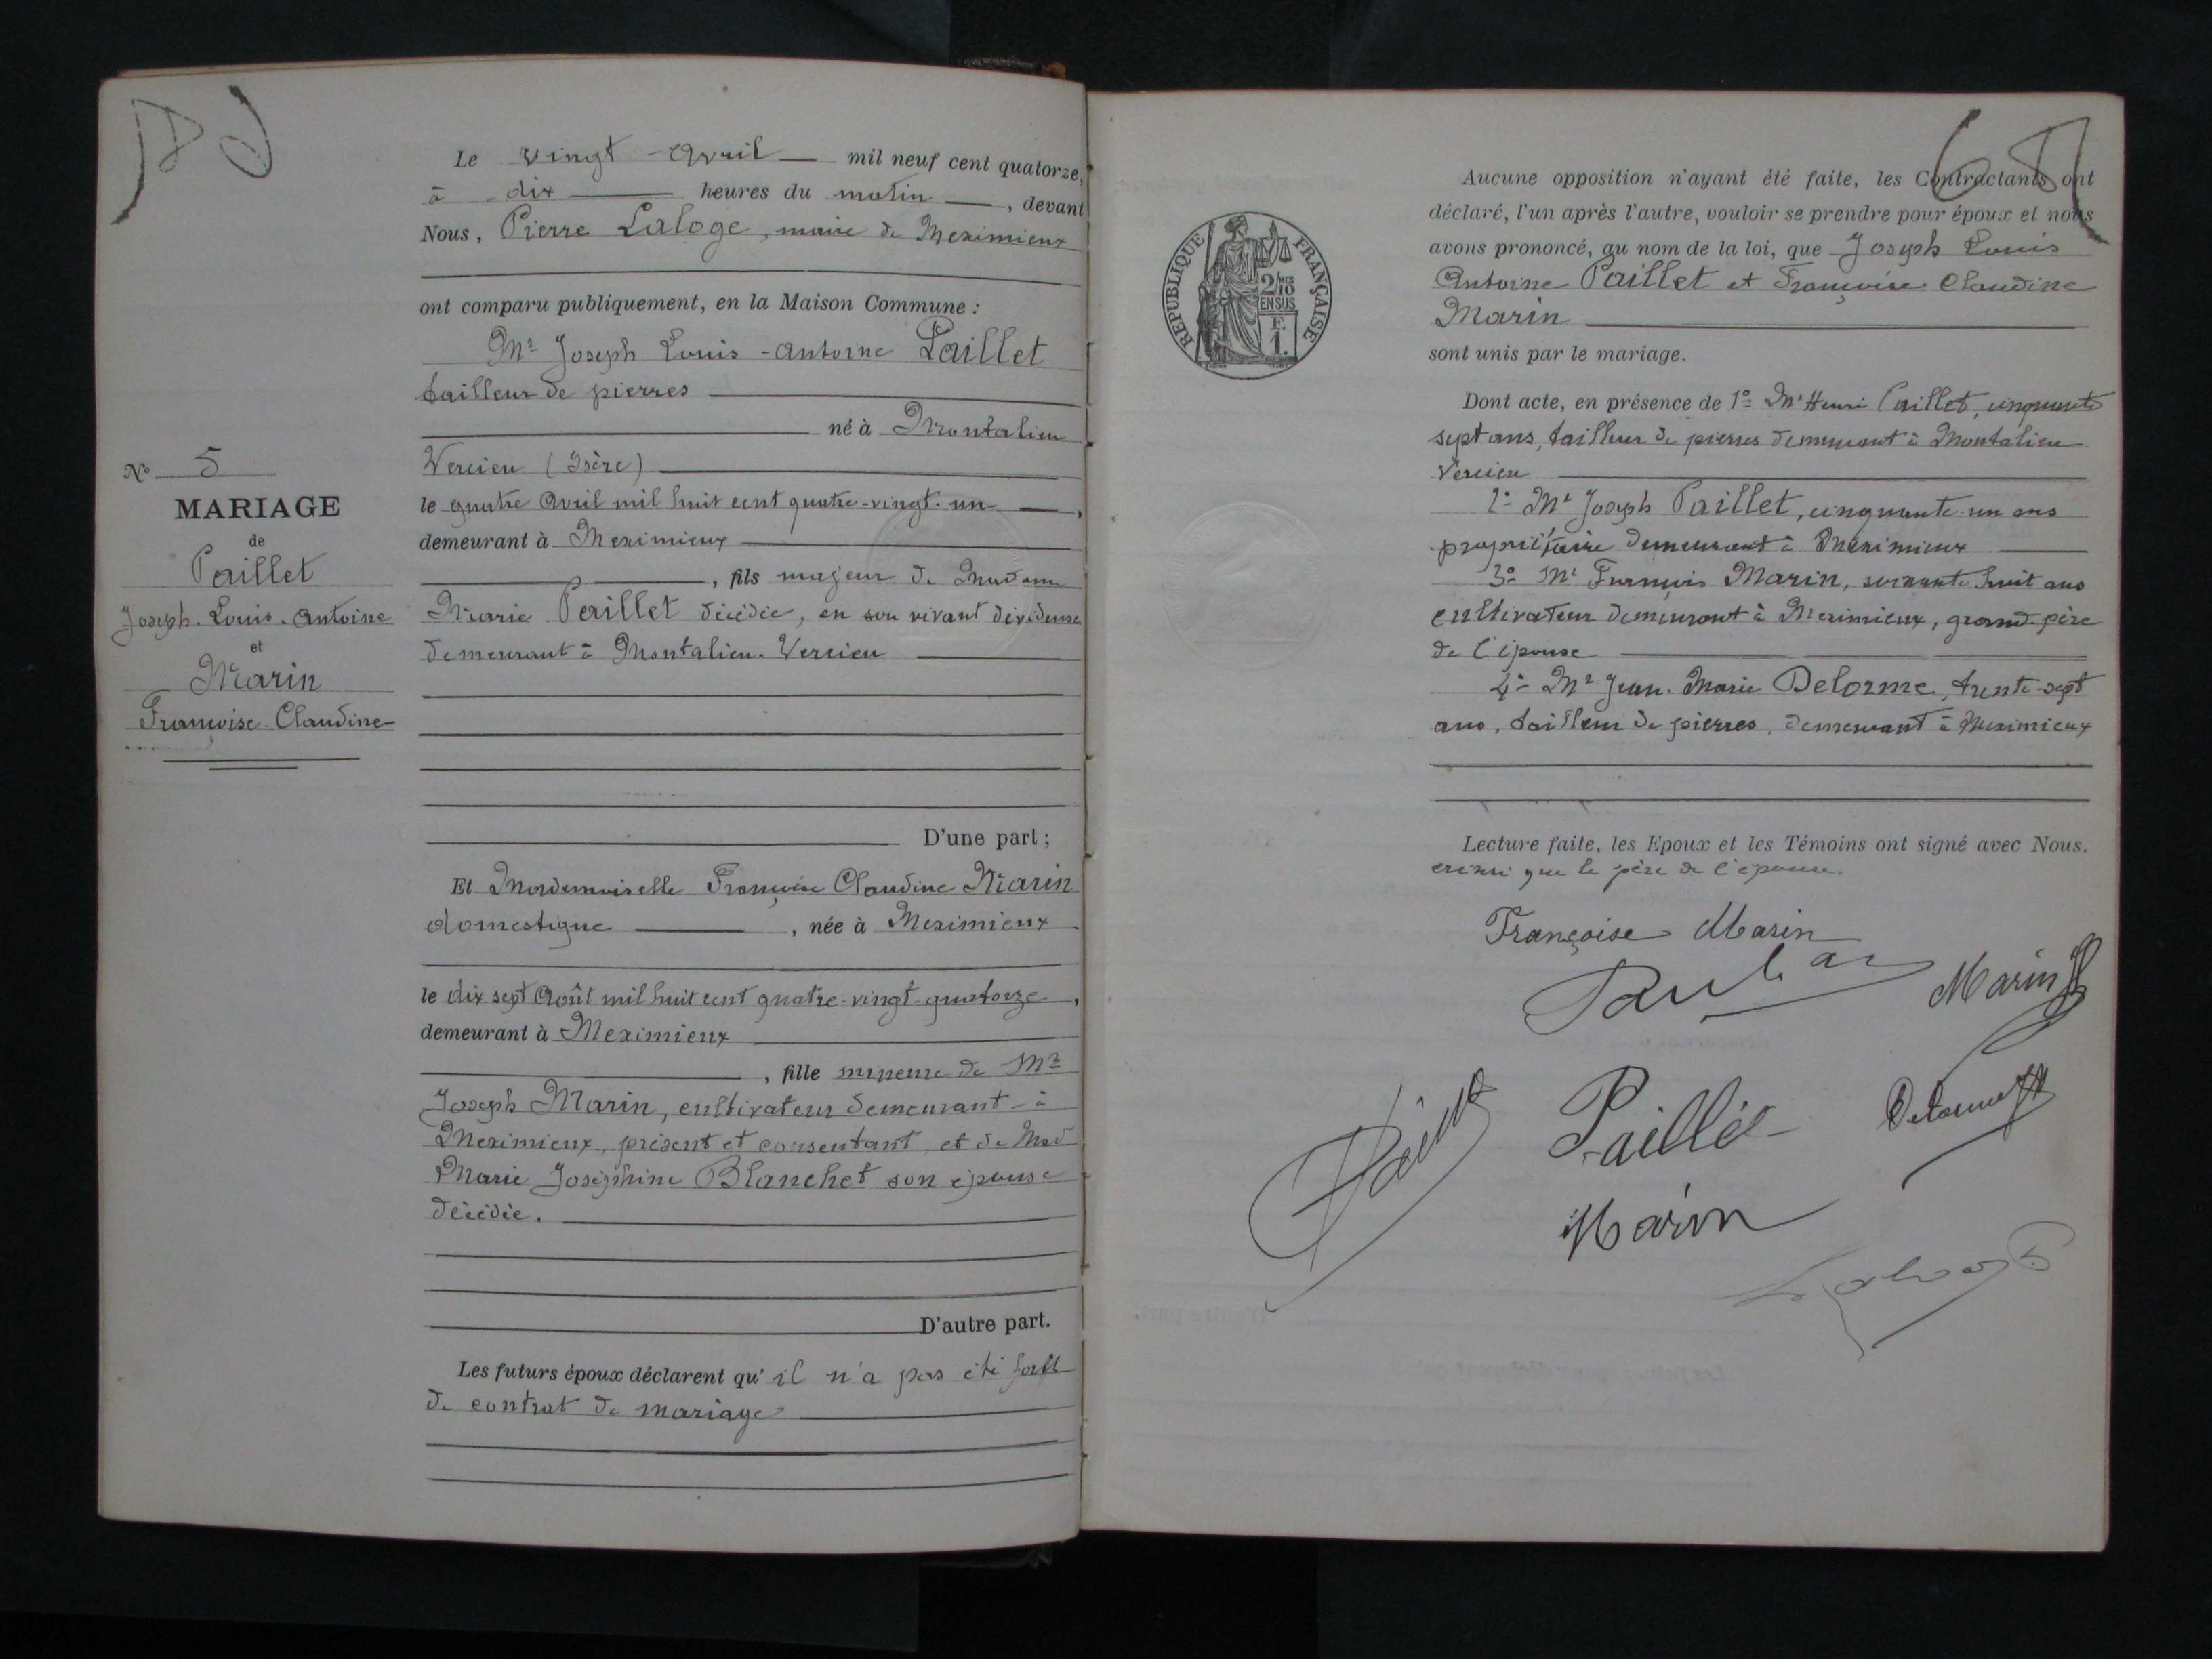 Le vingt - Avril — mil neuf cent quatorze,
à dix — heures du matin —, devant
Nous, Pierre Laloge, maire de Meximieux
ont comparu publiquement, en la Maison Commune :
Mr Joseph Louis - Antoine Paillet
tailleur de pierres
né à Montalieu
Vercieu (Isère)
le quatre Avril mil huit cent quatre-vingt-un —,
demeurant à Meximieux
, fils majeur de Madame
Marie Paillet décédée, en son vivant dévideuse
demeurant à Montalieu-Vercieu
D'une part ;
Et Mademoiselle Françoise Claudine Marin
domestique —, née à Meximieux
le dix sept Août mil huit cent quatre-vingt-quatorze,
demeurant à Meximieux
, fille mineure de Mr
Joseph Marin, cultivateur demeurant à
Meximieux, présent et consentant, et de Mad
Marie Joséphine Blanchet son épouse
décédée.
D'autre part.
Les futurs époux déclarent qu'il n'a pas été fait
de contrat de mariage
No 5
MARIAGE
de
Paillet
Joseph-Louis-Antoine
et
Marin
Françoise-Claudine
RÉPUBLIQUE FRANÇAISE
2/10MES
EN SUS
F.
1.
Aucune opposition n'ayant été faite, les Contractants ont
déclaré, l'un après l'autre, vouloir se prendre pour époux et nous
avons prononcé, au nom de la loi, que Joseph Louis
Antoine Paillet et Françoise Claudine
Marin
sont unis par le mariage.
Dont acte, en présence de 1o Mr Henri Paillet, cinquante
sept ans, tailleur de pierres demeurant à Montalieu
Vercieu
2o Mr Joseph Paillet, cinquante-un ans
propriétaire demeurant à Meximieux
3o Mr François Marin, soixante huit ans
cultivateur demeurant à Meximieux, grand-père
de l'épouse
4o Mr Jean-Marie Delorme, trente-sept
ans, tailleur de pierres, demeurant à Meximieux
Lecture faite, les Epoux et les Témoins ont signé avec Nous.
ainsi que le père de l'épouse.
Françoise Marin
Marin
Paillet
Delorme
Marin